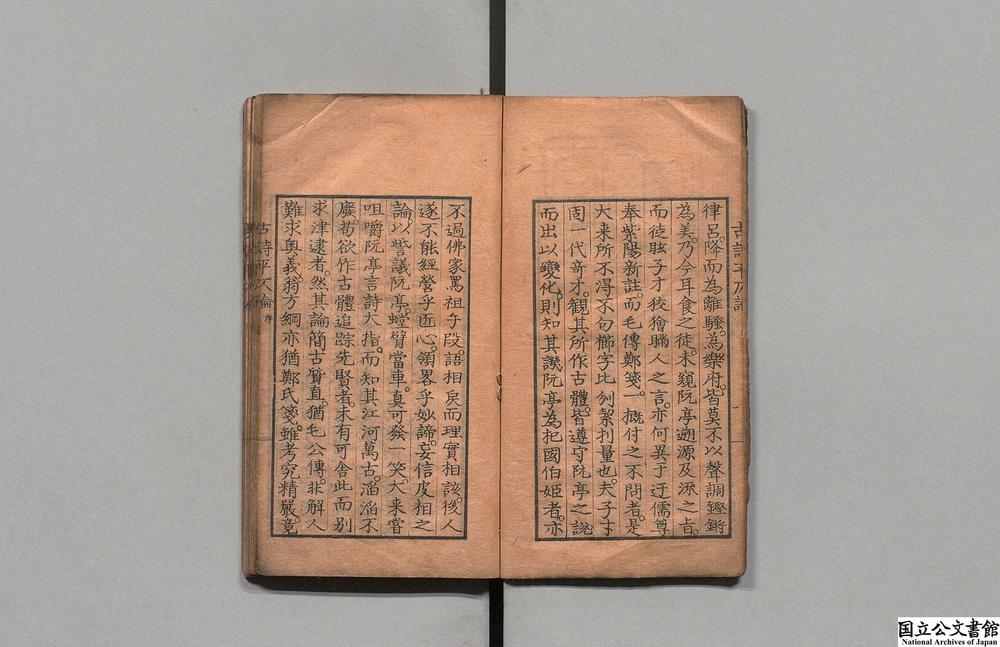 律呂。降而為離騷。為樂府。皆莫不以聲調鏗鏘
為美。乃今耳食之徒。未窺阮亭溯源及派之旨。
而徒眩子才狡獪賺人之言。亦何異于迂儒尊
奉紫陽新註。而毛傳鄭箋。一概付之不問者。是
大来所不得不句櫛字比。刌絜刌量也。夫子才
固一代奇才。觀其所作古體。皆遵守阮亭之說。
而出以變化。則知其譏阮亭為杞國伯姬者。亦
不過佛家罵祖手段。語相戾而理實相該。後人
遂不能經營乎匠心。領畧乎妙諦。妄信皮相之
論。以訾議阮亭。螳臂當車。真可發一笑。大来嘗
咀嚼阮亭言詩大指。而知其江河萬古。滔滔不
廢。苟欲作古體追踪先賢者。未有可舍此而別
求津逮者。然其論簡古質直。猶毛公傳。非解人
難求奥義。翁方綱亦猶鄭氏箋。雖考究精嚴。竟
古詩平仄論 序
国立公文書館
National Archives of Japan